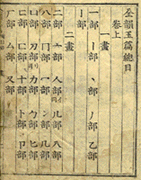 全韻玉篇總目
卷上
一畫
一部 丨部 丶部 丿部 乙部
亅部
二畫
二部 亠部 人部 儿部 入部
八部 冂部 冖部 冫部 几部
凵部 刀部 力部 勹部 匕部
匚部 匸部 十部 卜部 卩部
厂部 厶部 又部